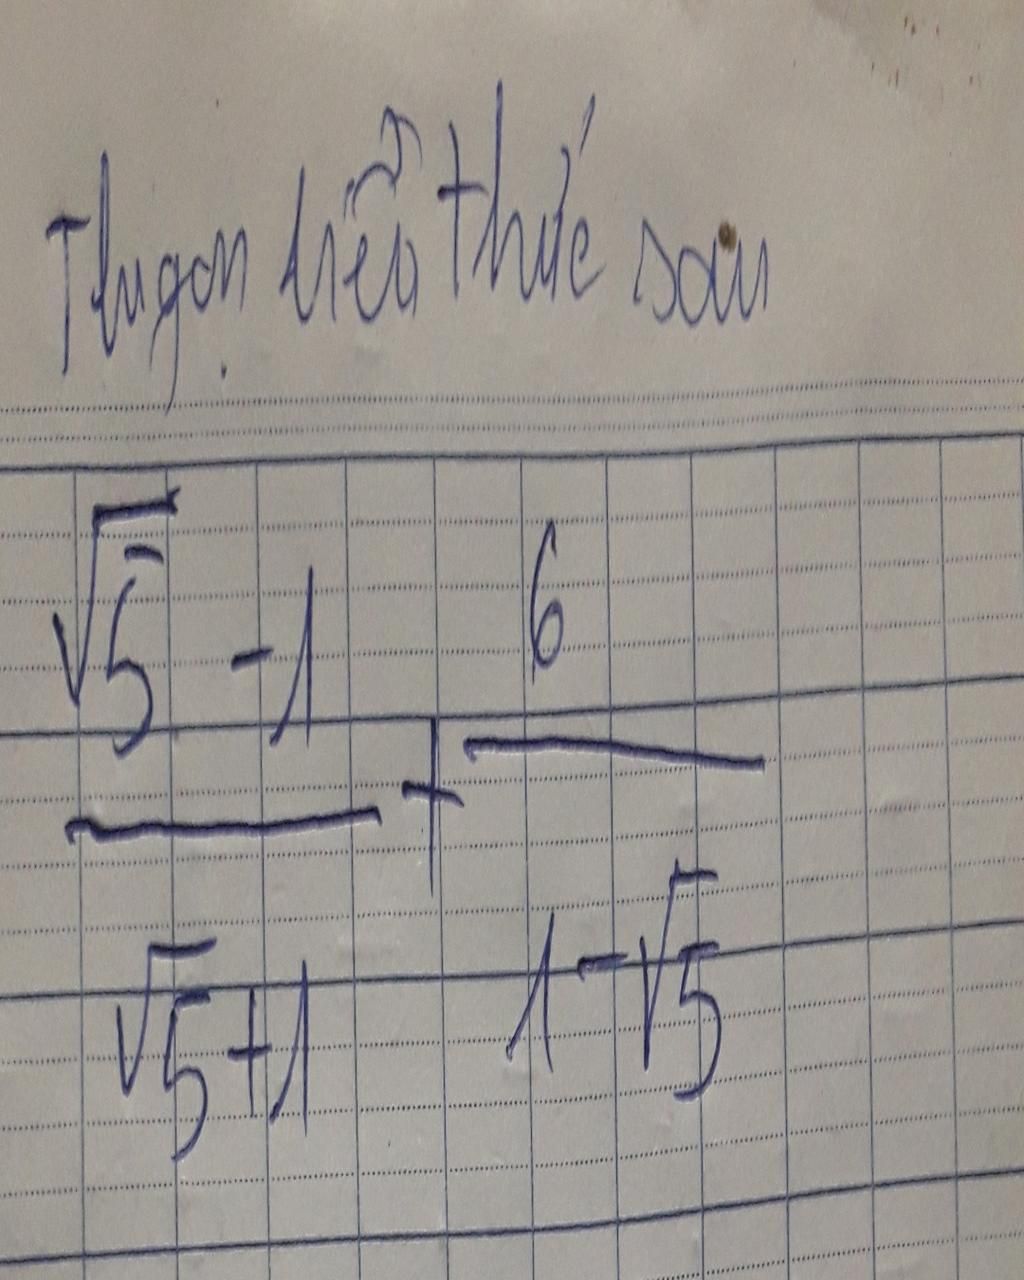 Thu gọn biểu thức sau
√5 - 1 / √5 + 1 + 6 / 1 - √5